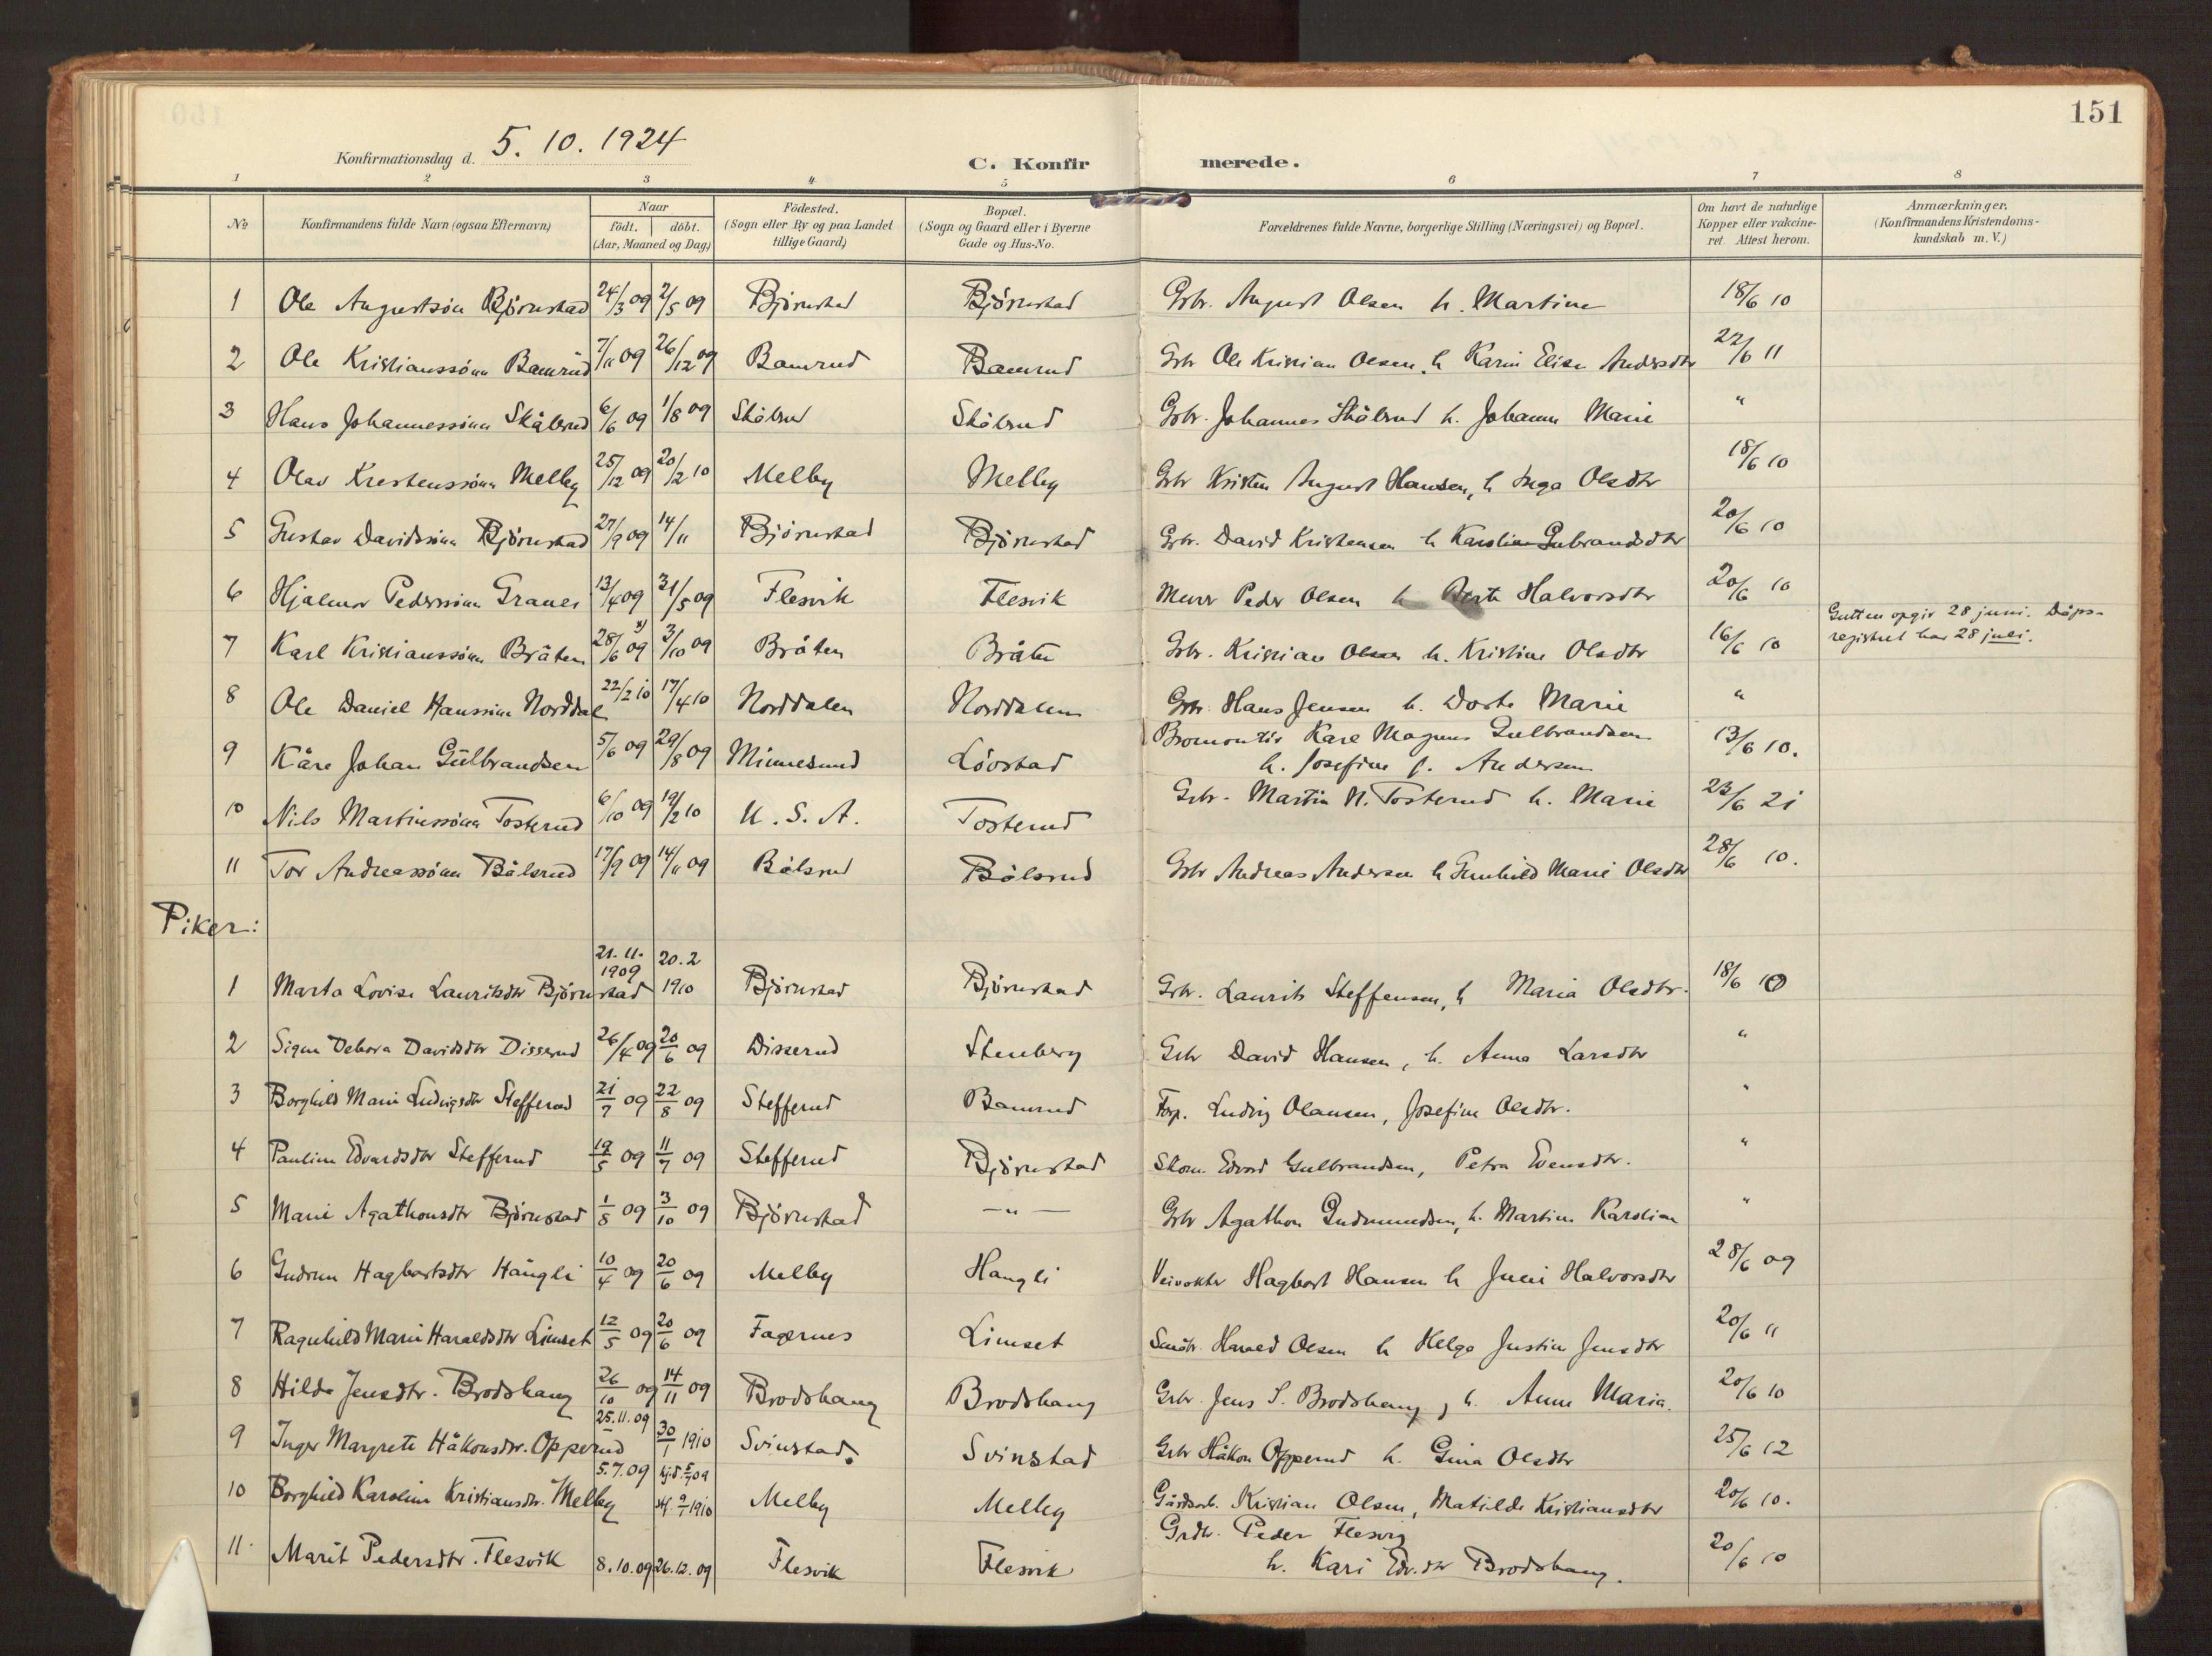 151
Konfirmationsdag d. 5. 10. 1924
C. Konfirmerede.
1 2 3 4 5 6 7 8
No
Konfirmandens fulde Navn (ogsaa Efternavn)
Naar födt. döbt. (Aar, Maaned og Dag)
Födested. (Sogn eller By og paa Landet tillige Gaard)
Bopæl. (Sogn og Gaard eller i Byerne Gade og Hus-No.
Forældrenes fulde Navne, borgerlige Stilling (Næringsvei) og Bopæl.
Om havt de naturlige Kopper eller vakcineret Attest herom.
Anmærkninger. (Konfirmandens Kristendomskundskab m. V.)
1 Ole Augustsön Björnstad 24/3 09 2/5 09 Björnstad Björnstad Gbr. August Olsen h. Martine 18/6 10
2 Ole Kristianssönn Bamrud 7/11 09 26/12 09 Bamrud Bamrud Gbr Ole Kristian Olsen, h Karin Elise Andersdtr 22/6 11
3 Hans Johannessönn Skålsrud 6/6 09 1/8 09 Skålsrud Skålsrud Gbr. Johannes Skålsrud h. Johanne Marie "
4 Olav Krestenssönn Melby 25/12 09 20/2 10 Melby Melby Gbr Kristen August Hansen, h Inga Olsdtr 18/6 10
5 Gustav Davidssönn Björnstad 27/9 09 14/11 Björnstad Björnstad Gbr. David Kristensen h Karoline Gulbrandsdtr 20/6 10
6 Hjalmar Pederssönn Granes 13/4 09 31/5 09 Flesvik Flesvik Murer Peder Olsen h Berte Halvorsdtr 20/6 10
7 Karl Kristianssönn Bråten 28/6 09 x) 3/10 09 Bråten Bråten Gbr. Kristian Olsen h. Kristine Olsdtr 16/6 10 Gutten opgir 28 juni. Dåps-
registret har 28 juli.
8 Ole Daniel Hanssönn Norddal 22/2 10 17/4 10 Norddalen Norddalen Gbr. Hans Jensen h. Dorte Marie "
9 Kåre Johan Gulbrandsen 5/6 09 29/8 09 Minnesund Lövstad Bromontör Karl Magnus Gulbrandsen 13/6 10.
h. Josefine f. Andersen
10 Nils Martinssönn Tosterud 6/10 09 19/2 10 U. S. A. Tosterud Gbr. Martin N. Tosterud h. Marie 23/6 21
11 Tor Andreassönn Bålsrud 17/9 09 14/11 09 Bålsrud Bålsrud Gbr Andreas Andersen h Gunhild Marie Olsdtr 28/6 10.
Piker:
1 Marta Lovise Lauritsdtr Björnstad 21.11. 1909 20.2 1910 Björnstad Björnstad Gbr. Laurits Steffensen, h Maria Olsdtr. 18/6 10
2 Signe Debora Davidsdtr Disserud 26/4 09 20/6 09 Disserud Stenberg Gbr David Hansen, h. Anna Larsdtr "
3 Borghild Marie Ludvigsdtr Stefferud 21/7 09 22/8 09 Stefferud Bamrud Forp. Ludvig Olausen, Josefine Olsdtr. "
4 Pauline Edvardsdtr Stefferud 19/5 09 11/7 09 Stefferud Björnstad Skom. Edvard Gulbrandsen, Petra Evensdtr. "
5 Marie Agathonsdtr Björnstad 1/8 09 3/10 09 Björnstad — " — Gbr Agathon Gudmundsen, h. Martine Karoline "
6 Gudrun Hagbartsdtr Hångli 10/4 09 20/6 09 Melby Hangli Veivokter Hagbart Hansen h Julie Halvorsdtr 28/6 09
7 Ragnhild Marie Haraldsdtr Limset 12/5 09 20/6 09 Fagernes Limset Småbr. Harald Olsen h Helga Justine Jensdtr 20/6 11
8 Hilda Jensdtr. Brodshaug 26/10 09 14/11 09 Brodshaug Brodshaug Gbr. Jens S. Brodshaug, h. Anne Maria. 20/6 10
9 Inger Margrete Håkonsdtr. Opperud 25.11.09 30/1 1910 Svinstad. Svinstad Gbr Håkon Opperud h. Gina Olsdtr 25/6 12
10 Borghild Karoline Kristiansdtr. Melby 5.7.09 hj.d. 5/7 09 stf 9/1 1910 Melby Melby Gårdsarb. Kristian Olsen, Matilde Kristiansdtr 20/6 10.
11. Marit Pedersdtr. Flesvik 8.10.09 26.12.09 Flesvik Flesvik Grdbr. Peder Flesvig 20/6 10
h. Kari Edv.dtr Brodshaug.